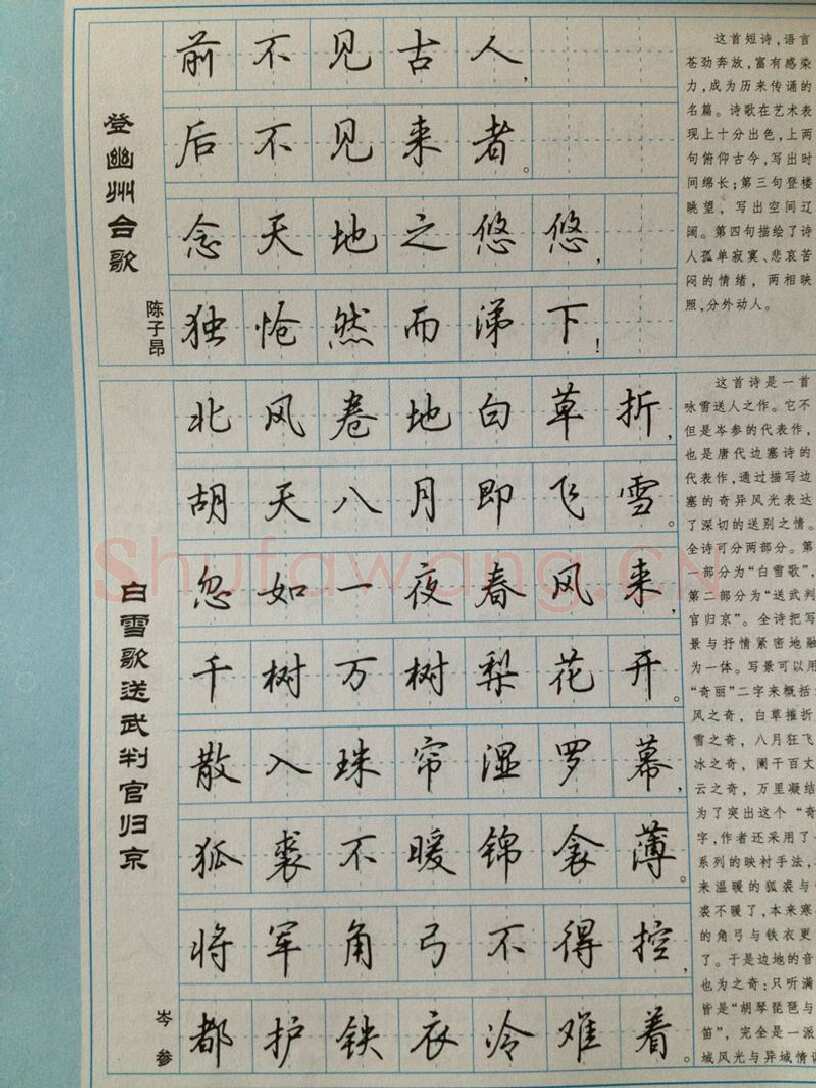 登幽州台歌
陈子昂
前不见古人，
后不见来者。
念天地之悠悠，
独怆然而涕下！
这首短诗，语言
苍劲奔放，富有感染
力，成为历来传诵的
名篇。诗歌在艺术表
现上十分出色，上两
句俯仰古今，写出时
间绵长；第三句登楼
眺望，写出空间辽
阔。第四句描绘了诗
人孤单寂寞、悲哀苦
闷的情绪，两相映
照，分外动人。
白雪歌送武判官归京
岑参
北风卷地白草折，
胡天八月即飞雪。
忽如一夜春风来，
千树万树梨花开。
散入珠帘湿罗幕，
狐裘不暖锦衾薄。
将军角弓不得控，
都护铁衣冷难着。
这首诗是一首
咏雪送人之作。它不
但是岑参的代表作，
也是唐代边塞诗的
代表作，通过描写边
塞的奇异风光表达
了深切的送别之情。
全诗可分两部分。第
一部分为“白雪歌”，
第二部分为“送武判
官归京”。全诗把写
景与抒情紧密地融
为一体。写景可以用
“奇丽”二字来概括：
风之奇，白草摧折
雪之奇，八月狂飞
冰之奇，阑干百丈
云之奇，万里凝结
为了突出这个“奇
字，作者还采用了
系列的映衬手法，
来温暖的狐裘与
裘不暖了，本来寒
的角弓与铁衣更
了。于是边地的音
也为之奇：只听满
皆是“胡琴琵琶与
笛”，完全是一派
域风光与异域情调
Shufawang.cn